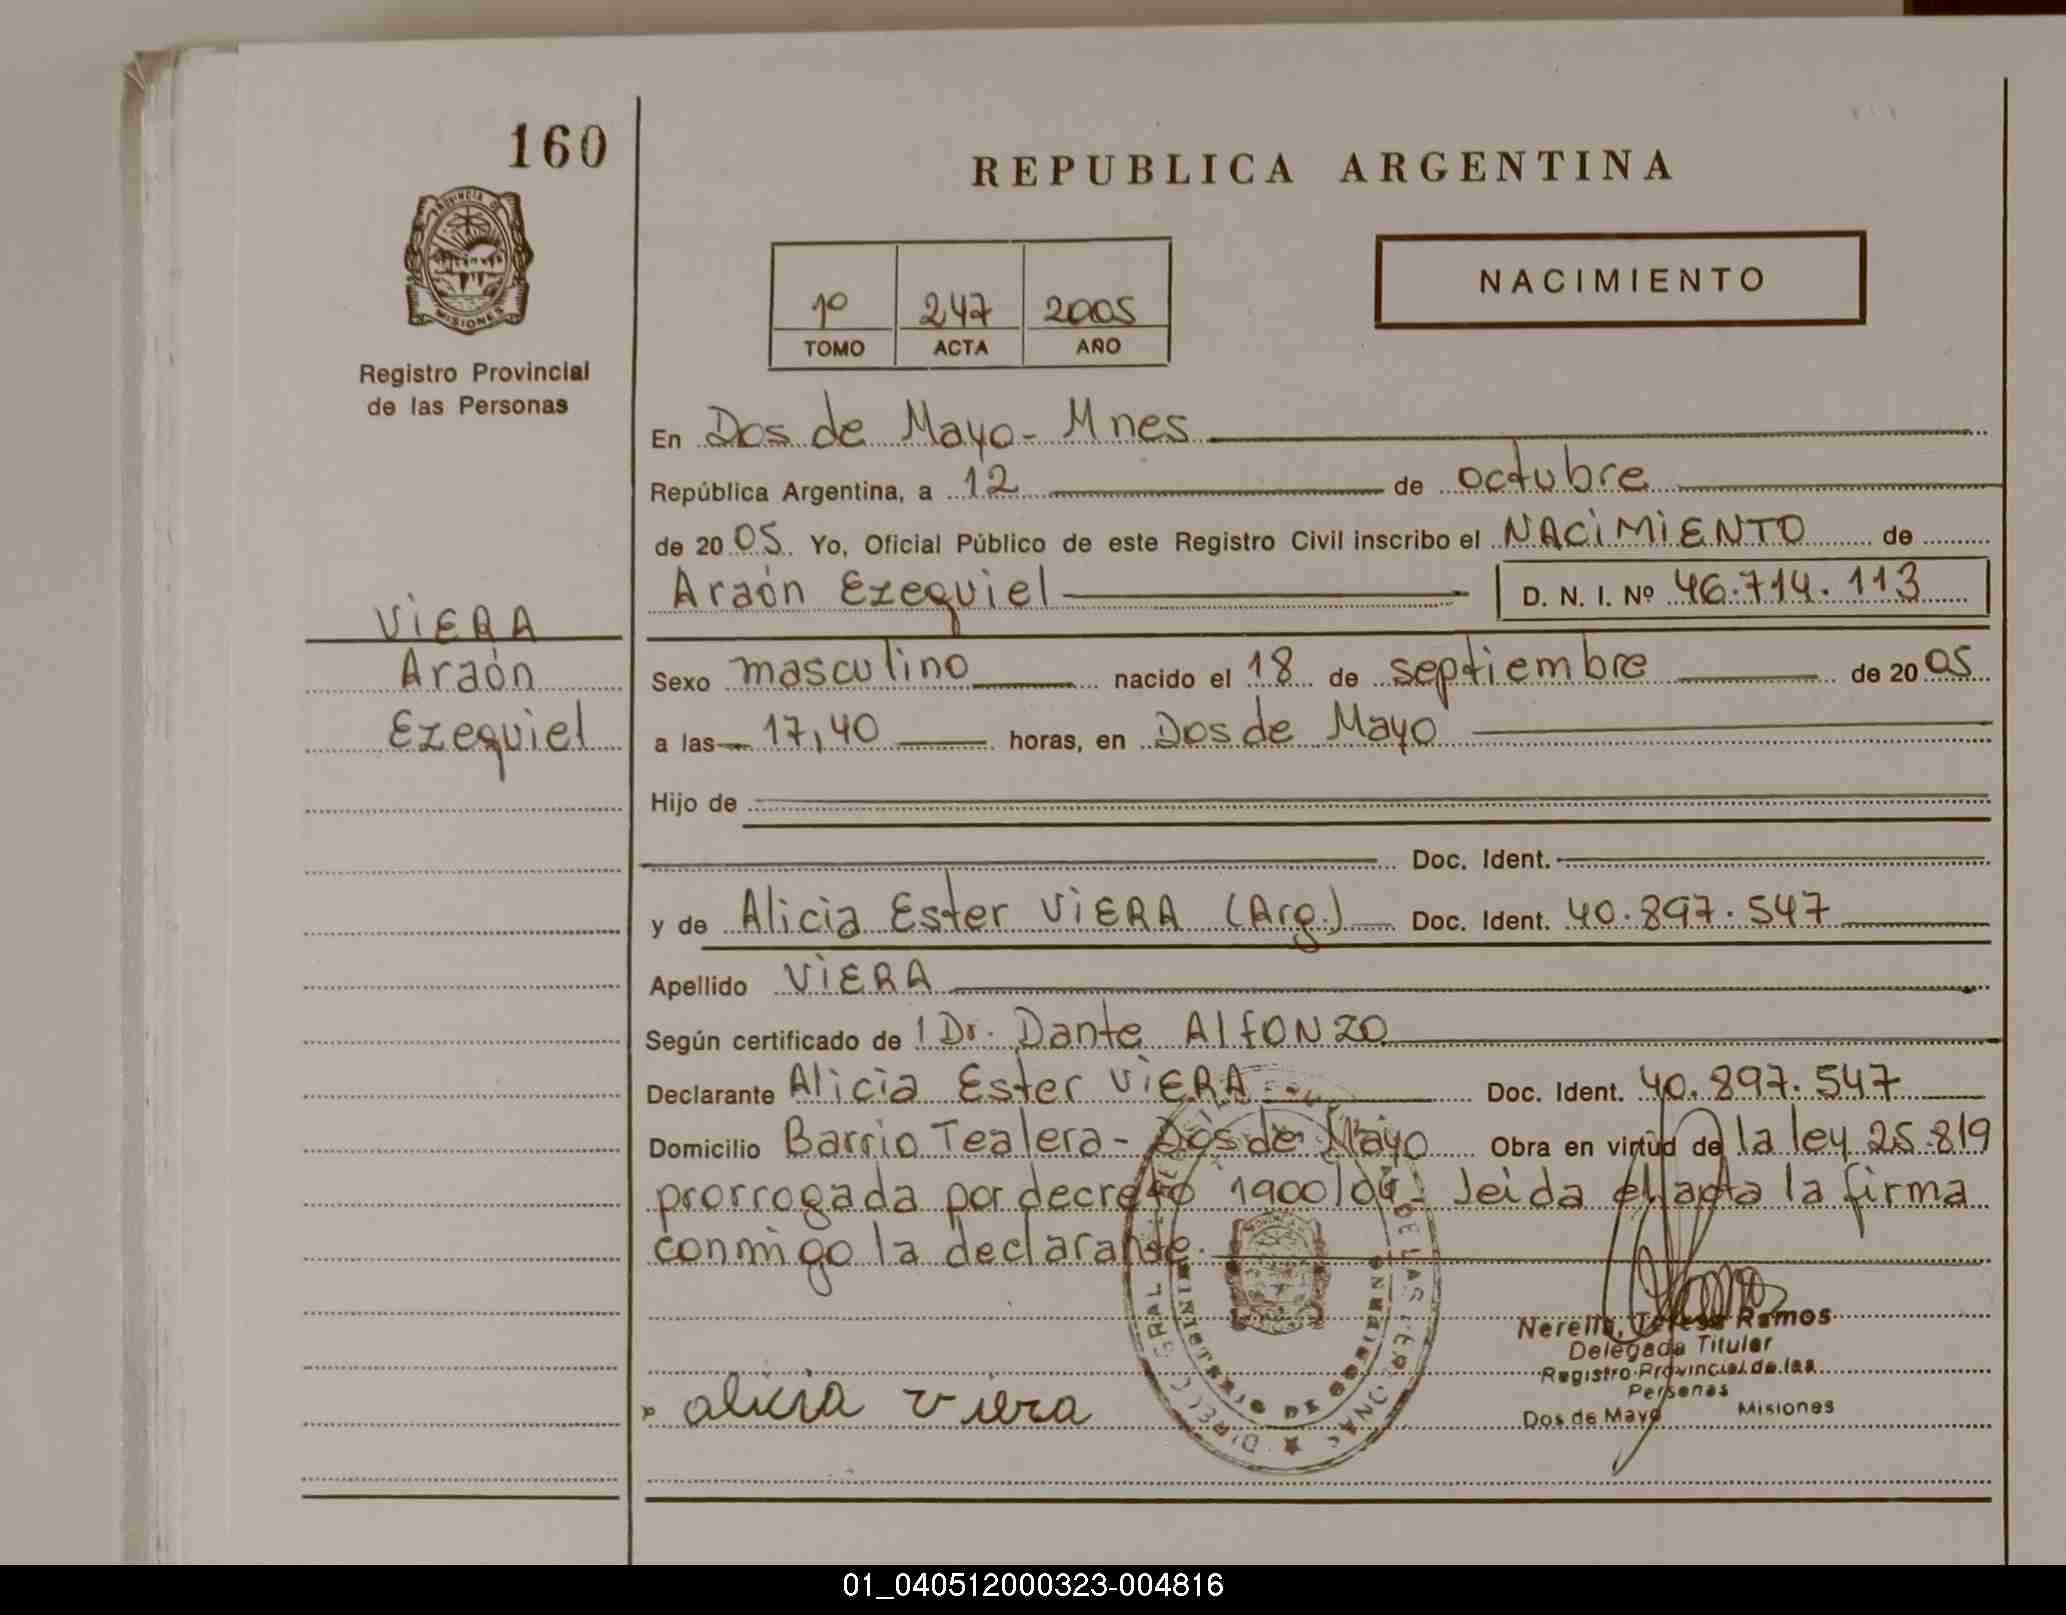 160
REPUBLICA ARGENTINA
PROVINCIA DE
MISIONES
Registro Provincial
de las Personas
1º 247 2005
TOMO ACTA AÑO
NACIMIENTO
En Dos de Mayo - Mnes
República Argentina, a 12 de octubre
de 2005 Yo, Oficial Público de este Registro Civil inscribo el NACIMIENTO de
Araón Ezequiel D. N. I. Nº 46.714.113
VIERA
Araón
Ezequiel
Sexo masculino nacido el 18 de septiembre de 2005
a las 17,40 horas, en Dos de Mayo
Hijo de
Doc. Ident.
y de Alicia Ester VIERA (Arg.) Doc. Ident. 40.897.547
Apellido VIERA
Según certificado de 1 Dr. Dante AlfONZO
Declarante Alicia Ester VIERA Doc. Ident. 40.897.547
Domicilio Barrio Tealera - Dos de Mayo Obra en virtud de la ley 25.819
prorrogada por decreto 1900/04 - leida el acta la firma
conmigo la declarante.
alicia viera
Teresa Ramos
Delegada Titular
Registro Provincial de las
Personas
Dos de Mayo Misiones
01_040512000323-004816